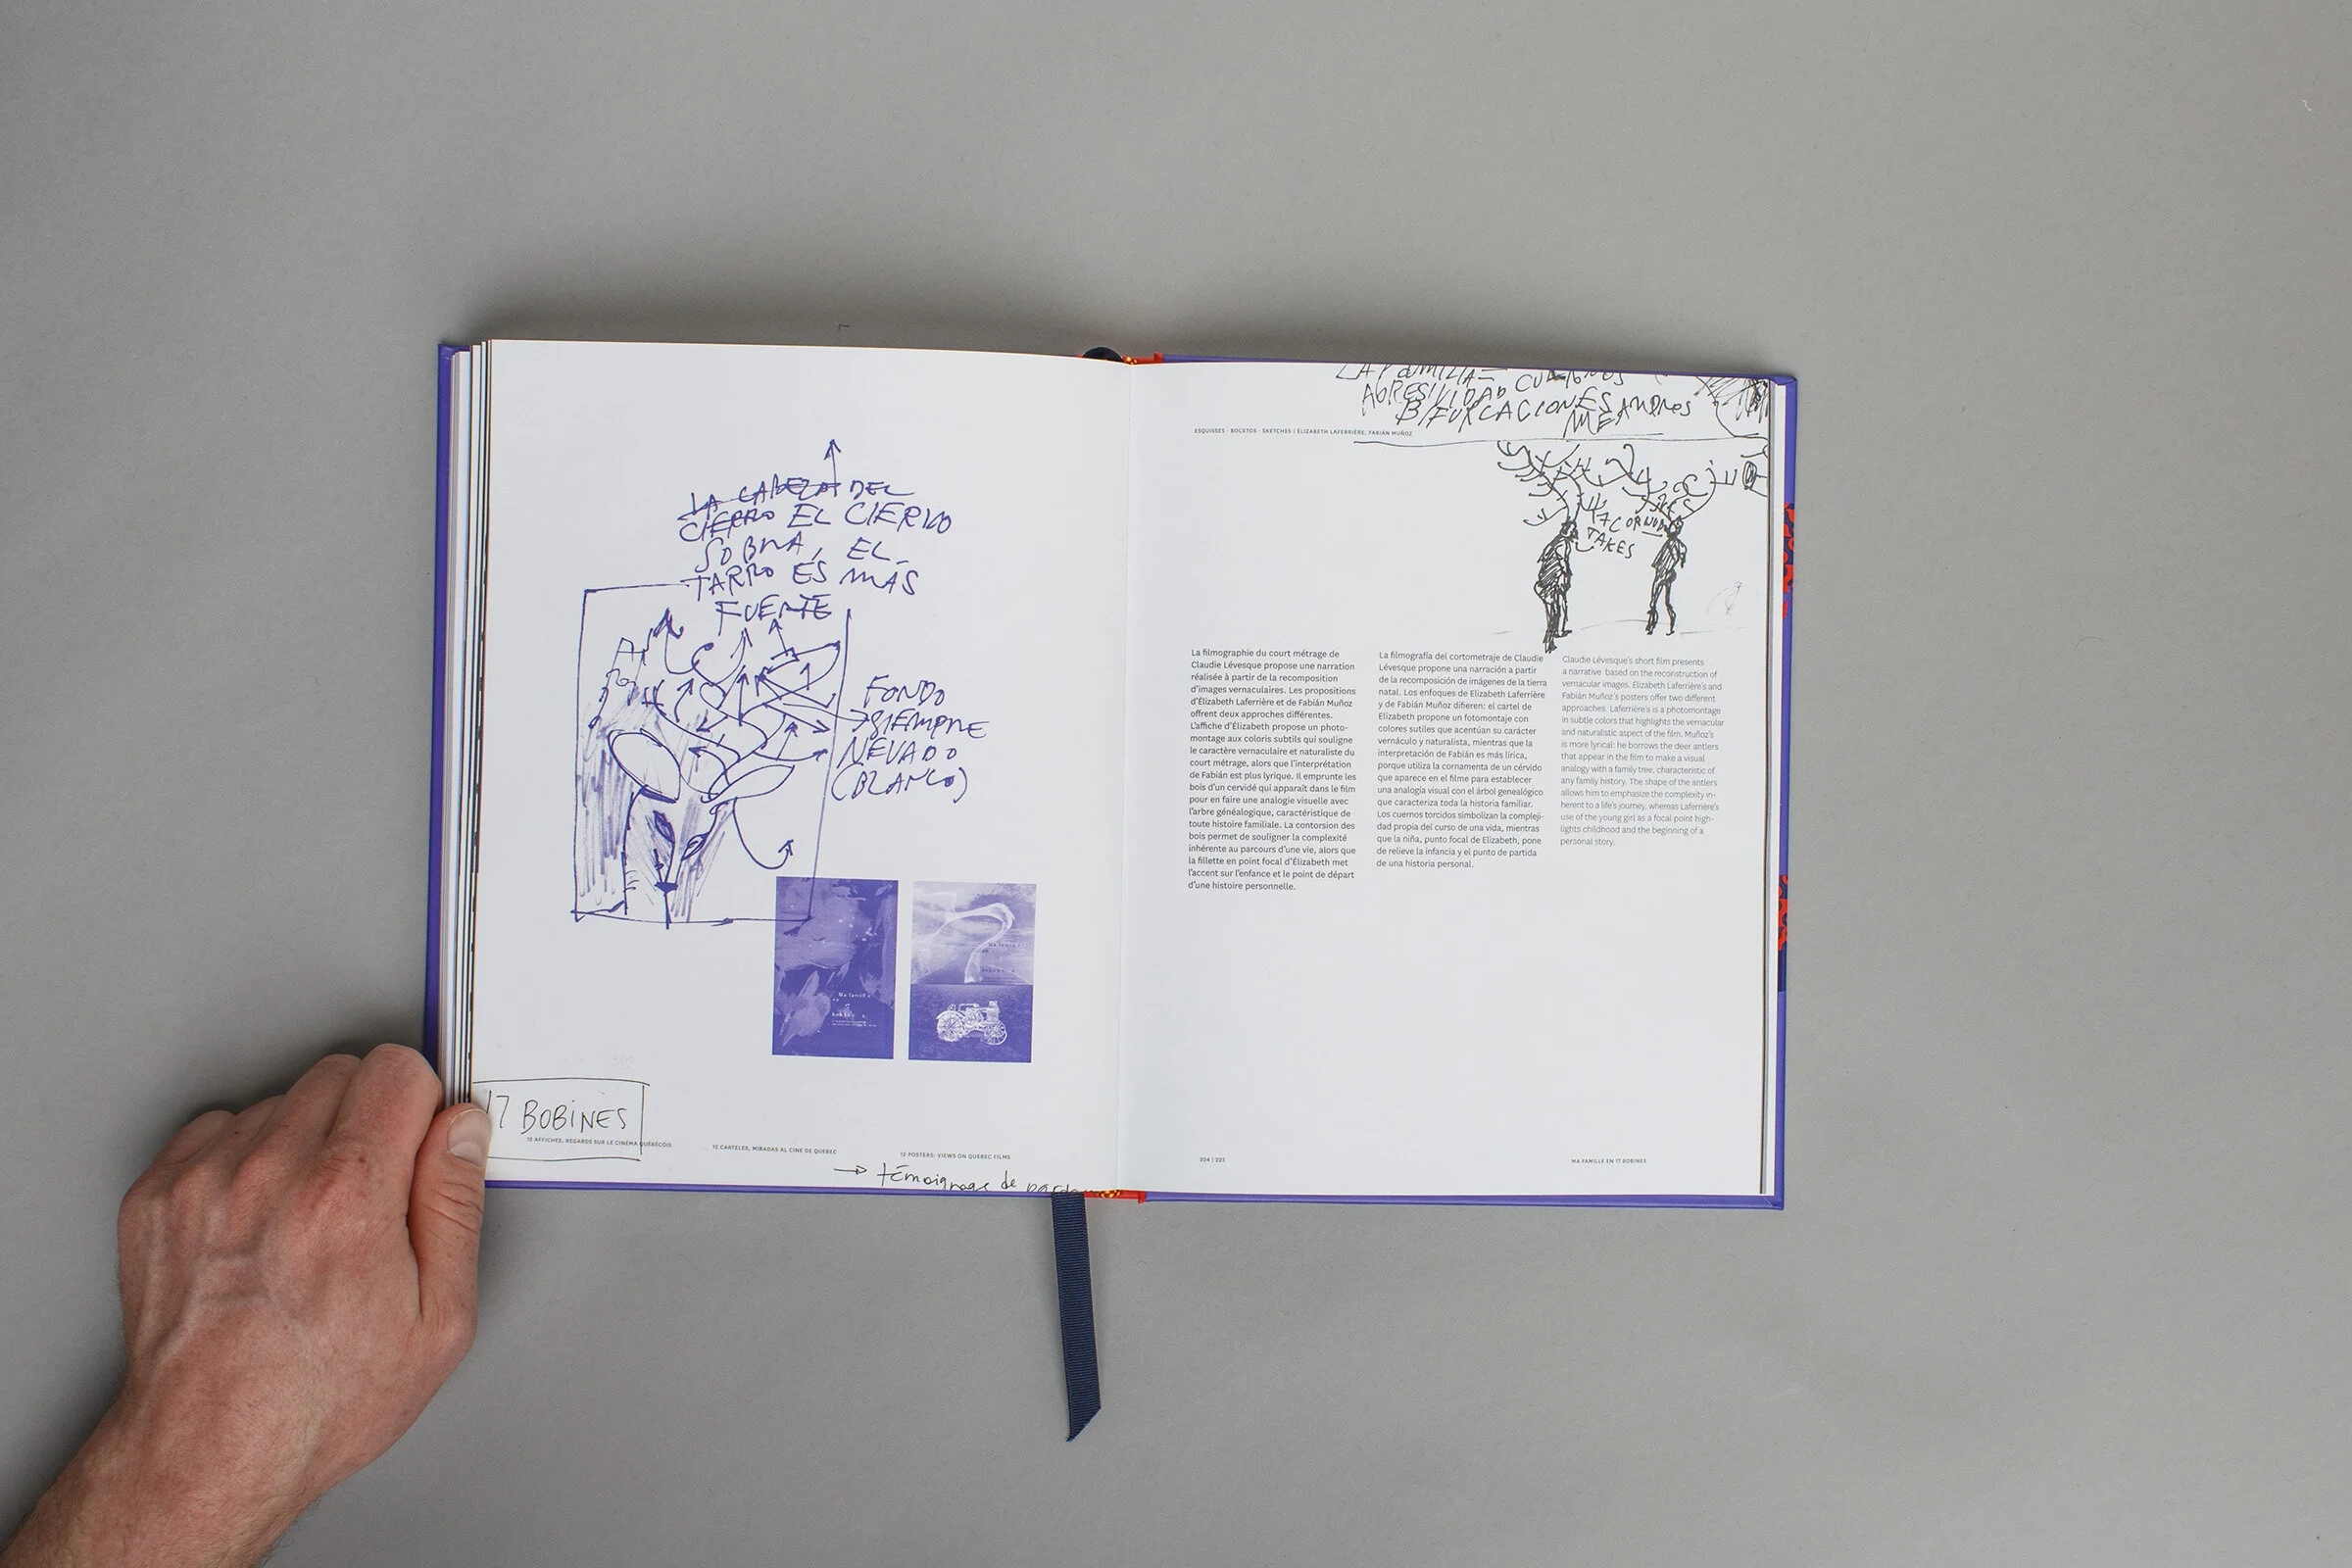 LA CABEZA DEL
CIERRO EL CIERVO
SOBRA, EL
TARRO ES MÁS
FUERTE
FONDO
SIEMPRE
NEVADO
(BLANCO)
Ma famille
en
bobines
17 BOBINES
12 AFFICHES, REGARDS SUR LE CINÉMA QUÉBÉCOIS
12 CARTELES, MIRADAS AL CINE DE QUEBEC
12 POSTERS: VIEWS ON QUEBEC FILMS
→ témoignage de
LA FAMILIA =
AGRESIVIDAD CUERNOS
BIFURCACIONES MEANDROS
ESQUISSES · BOCETOS · SKETCHES | ÉLIZABETH LAFERRIÈRE, FABIÁN MUÑOZ
17 CORNUDO
TAKES
La filmographie du court métrage de
Claudie Lévesque propose une narration
réalisée à partir de la recomposition
d'images vernaculaires. Les propositions
d'Élizabeth Laferrière et de Fabián Muñoz
offrent deux approches différentes.
L'affiche d'Élizabeth propose un photo-
montage aux coloris subtils qui souligne
le caractère vernaculaire et naturaliste du
court métrage, alors que l'interprétation
de Fabián est plus lyrique. Il emprunte les
bois d'un cervidé qui apparaît dans le film
pour en faire une analogie visuelle avec
l'arbre généalogique, caractéristique de
toute histoire familiale. La contorsion des
bois permet de souligner la complexité
inhérente au parcours d'une vie, alors que
la fillette en point focal d'Élizabeth met
l'accent sur l'enfance et le point de départ
d'une histoire personnelle.
La filmografía del cortometraje de Claudie
Lévesque propone una narración a partir
de la recomposición de imágenes de la tierra
natal. Los enfoques de Elizabeth Laferriere
y de Fabián Muñoz difieren: el cartel de
Elizabeth propone un fotomontaje con
colores sutiles que acentúan su carácter
vernáculo y naturalista, mientras que la
interpretación de Fabián es más lírica,
porque utiliza la cornamenta de un cérvido
que aparece en el filme para establecer
una analogía visual con el árbol genealógico
que caracteriza toda la historia familiar.
Los cuernos torcidos simbolizan la compleji-
dad propia del curso de una vida, mientras
que la niña, punto focal de Elizabeth, pone
de relieve la infancia y el punto de partida
de una historia personal.
Claudie Lévesque's short film presents
a narrative based on the reconstruction of
vernacular images. Élizabeth Laferrière's and
Fabián Muñoz's posters offer two different
approches. Laferrière's is a photomontage
in subtle colors that highlights the vernacular
and naturalistic aspect of the film. Muñoz's
is more lyrical: he borrows the deer antlers
that appear in the film to make a visual
analogy with a family tree, characteristic of
any family history. The shape of the antlers
allows him to emphasize the complexity in-
herent to a life's journey, whereas Laferrière's
use of the young girl as a focal point high-
lights childhood and the beginning of a
personal story.
224 | 225
MA FAMILLE EN 17 BOBINES